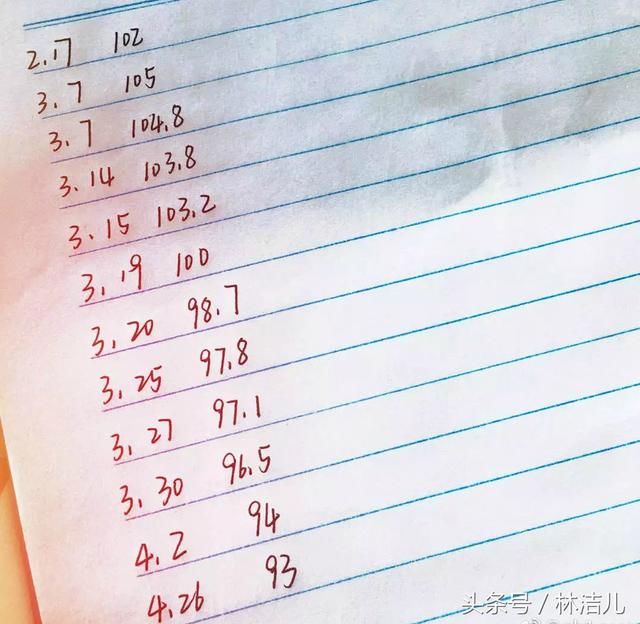 2.17 102
3.7 105
3.7 104.8
3.14 103.8
3.15 103.2
3.19 100
3.20 98.7
3.25 97.8
3.27 97.1
3.30 96.5
4.2 94
4.26 93
头条号／林洁儿